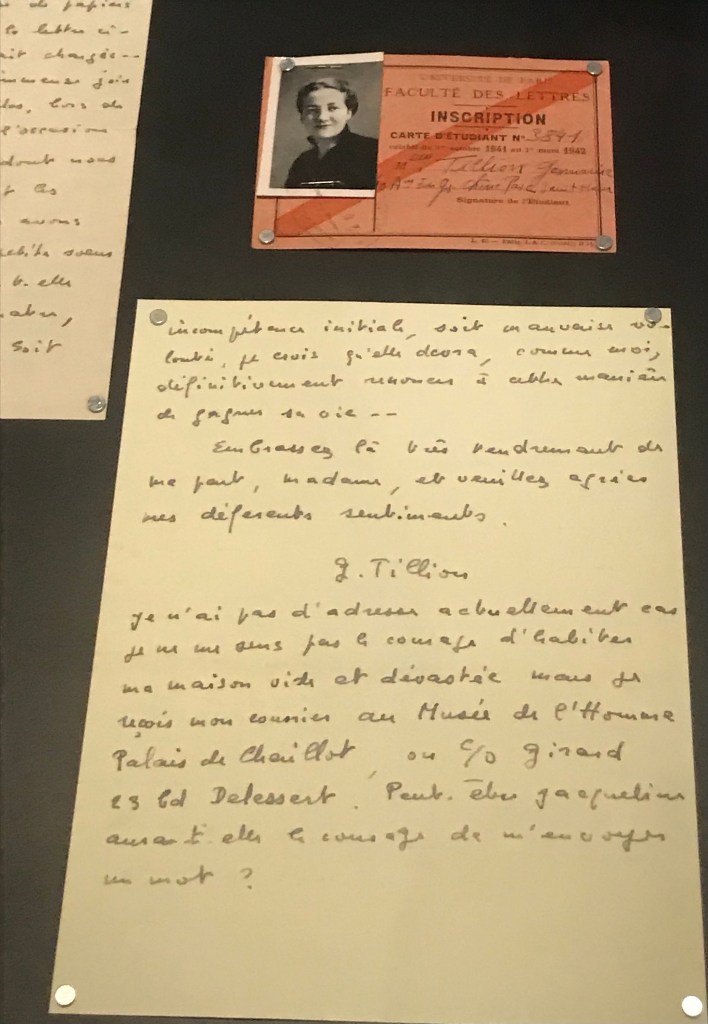 de papiers
la lettre ci-
ait chargée --
immense joie
lors de
l'occasion
dont nous
les
avons
petite soeur
t. elle
soit
UNIVERSITÉ DE PARIS
FACULTÉ DES LETTRES
INSCRIPTION
CARTE D'ÉTUDIANT N° 3841
valable du 1er octobre 1941 au 1er mars 1942
Tillion Germaine
Signature de l'Étudiant.
incompétence initiale, soit mauvaise vo-
lonté, je crois qu'elle devra, comme moi,
définitivement renoncer à cette manière
de gagner sa vie --
Embrassez là très tendrement de
ma part, madame, et veuillez agréer
mes déférents sentiments.
G. Tillion
je n'ai pas d'adresse actuellement car
je ne me sens pas le courage d'habiter
ma maison vide et dévastée mais je
reçois mon courrier au Musée de l'Homme
Palais de Chaillot, ou c/o Girard
23 bd Delessert. Peut-être Jacqueline
aura-t-elle le courage de m'envoyer
un mot ?